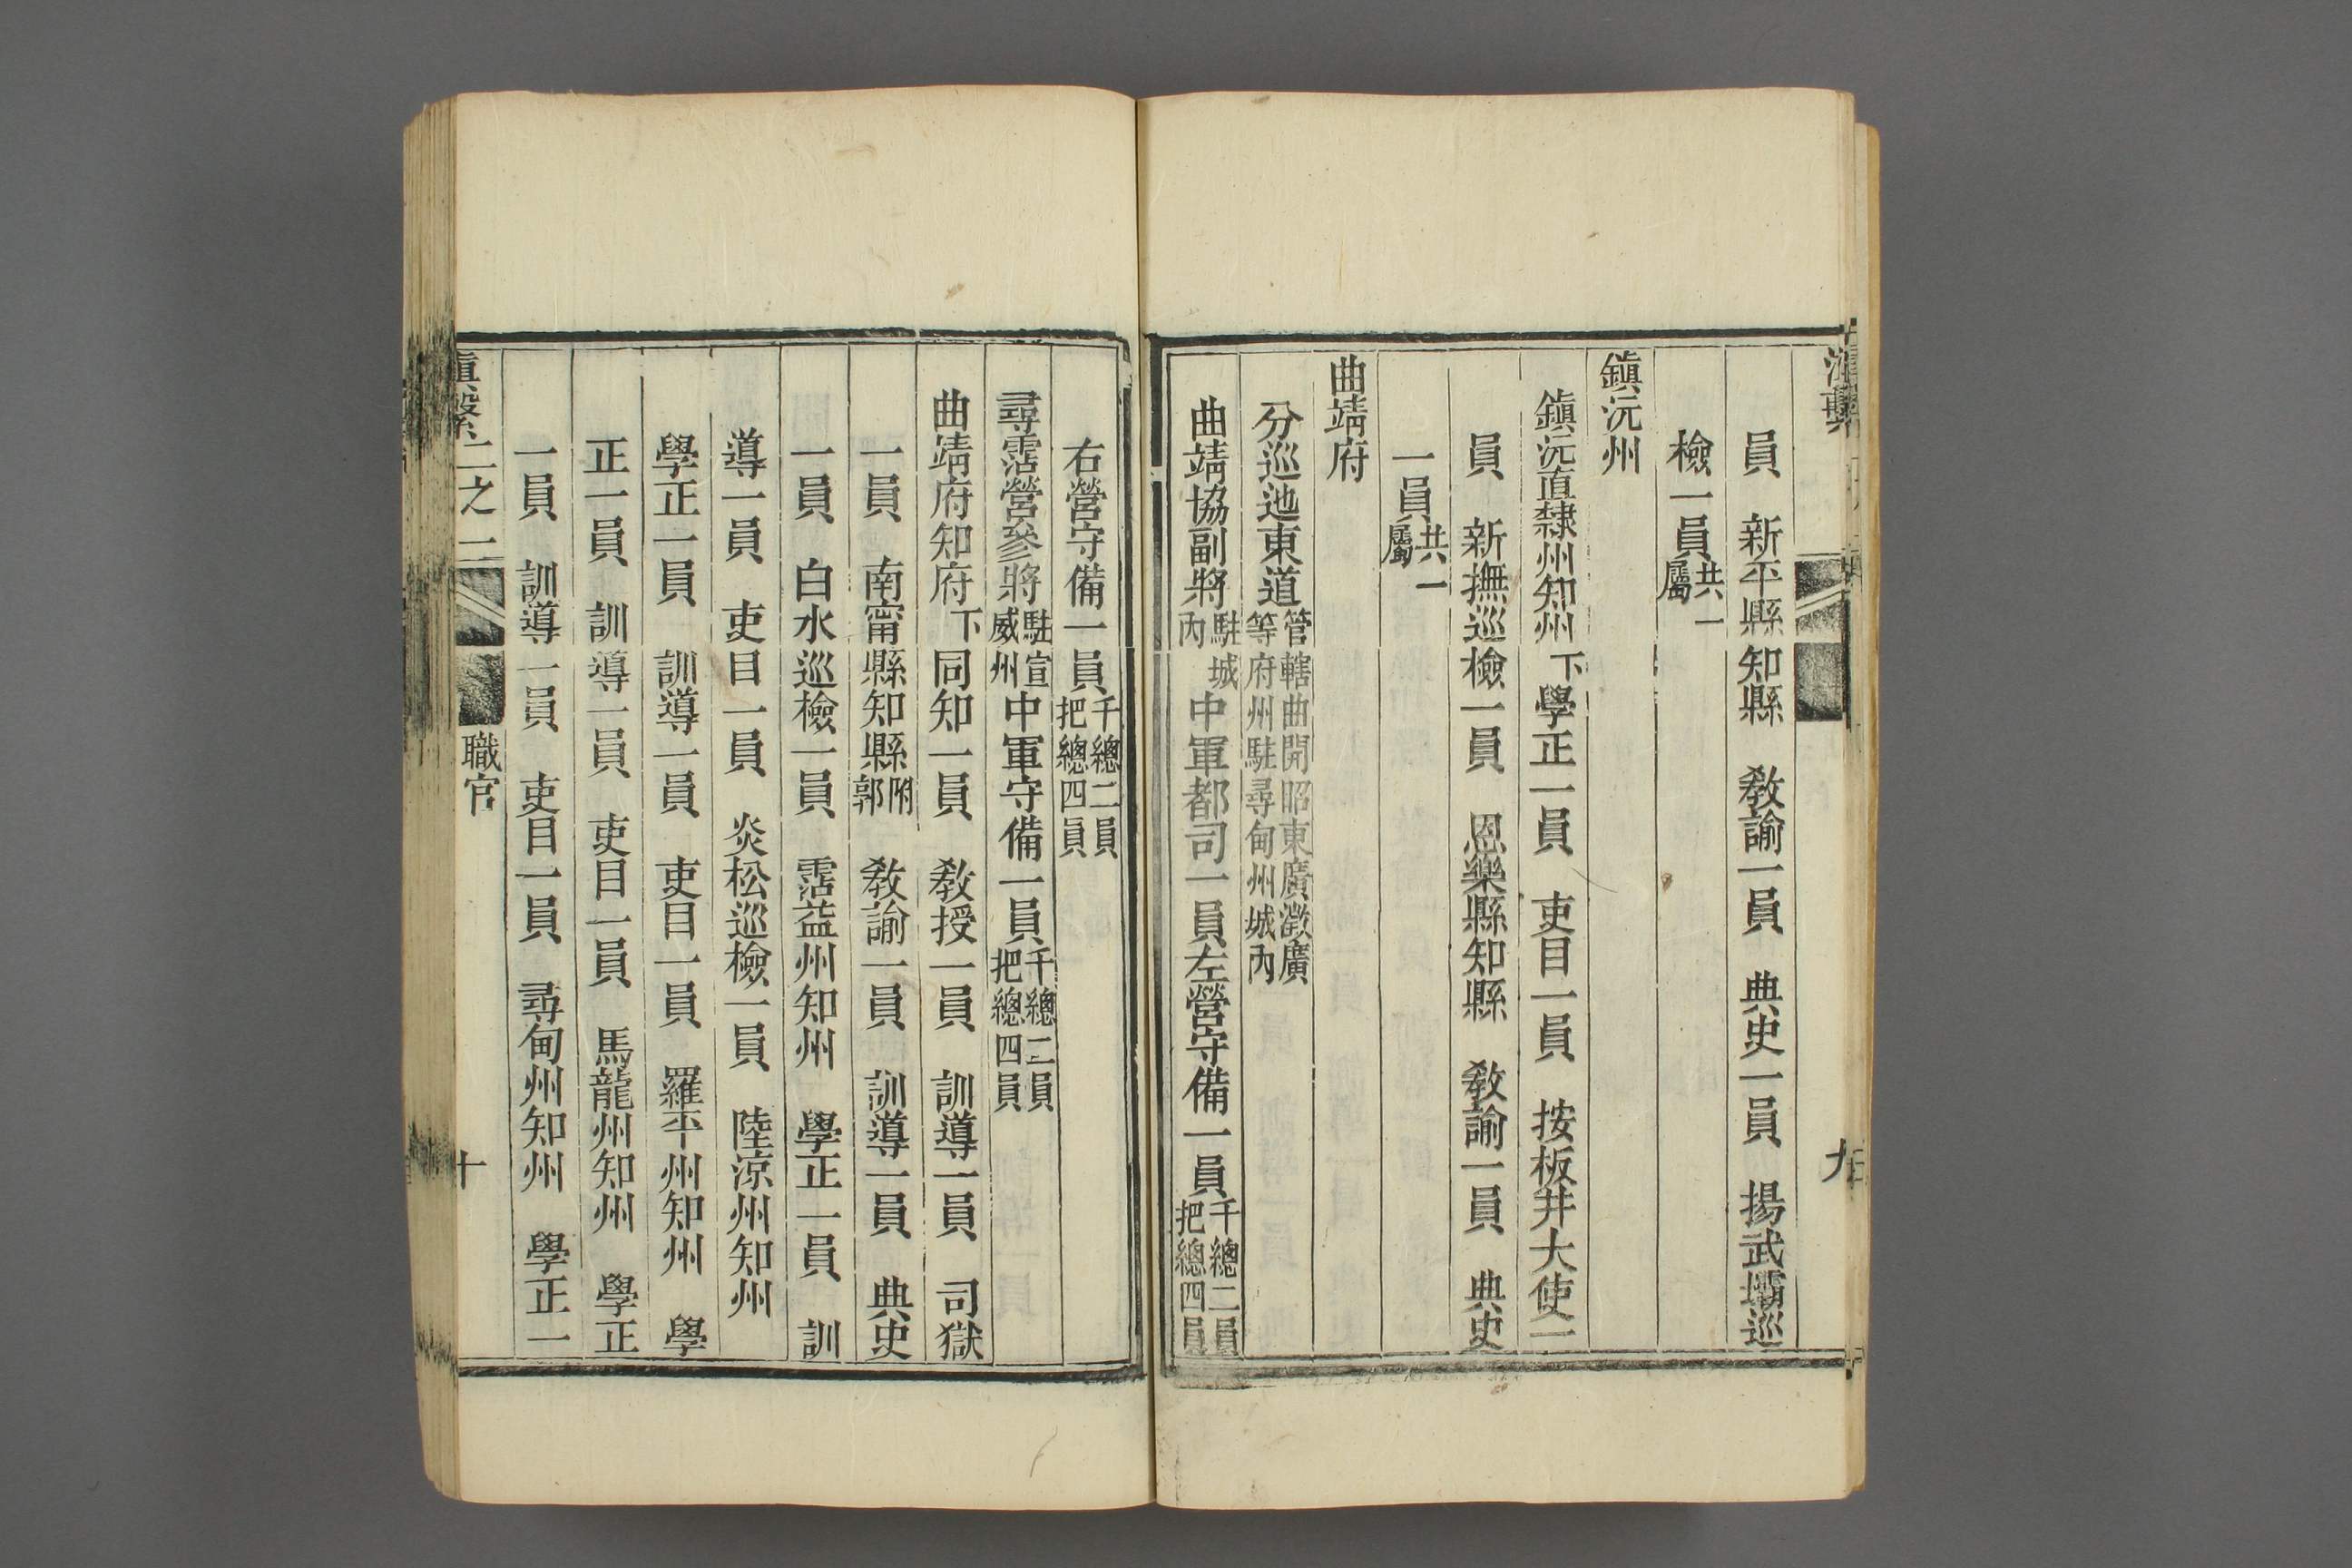 員　新平縣知縣　敎諭一員　典史一員　揚武壩巡
檢一員共一屬
鎭沅州
鎭沅直隸州知州下學正一員　吏目一員　按板井大使一
員　新撫巡檢一員　恩樂縣知縣　敎諭一員　典史
一員共一屬
曲靖府
分巡迆東道管轄曲開昭東廣澂廣等府州駐尋甸州城內
曲靖協副將駐城內中軍都司一員左營守備一員千總二員把總四員
右營守備一員千總二員把總四員
尋霑營參將駐宣威州中軍守備一員千總二員把總四員
曲靖府知府下同知一員　敎授一員　訓導一員　司獄
一員　南甯縣知縣附郭　敎諭一員　訓導一員　典史
一員　白水巡檢一員　霑益州知州　學正一員　訓
導一員　吏目一員　炎松巡檢一員　陸涼州知州
學正一員　訓導一員　吏目一員　羅平州知州　學
正一員　訓導一員　吏目一員　馬龍州知州　學正
一員　訓導一員　吏目一員　尋甸州知州　學正一
滇繫二之二　職官　十